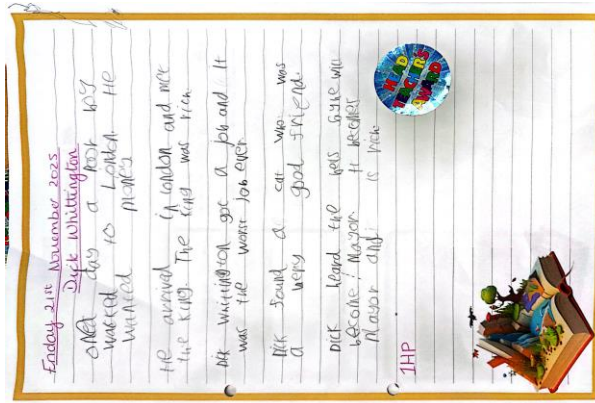 Friday 21st November 2025
Dick Whittington
oned day a poor boy
walked to London He
wanted money
He arrived in London and met
the King. The King was rich
Dick Whittington got a job and it
was the worst job ever
Dick found a cat who was
a very good friend.
Dick heard the bells say he will
become! Mayor. It becomes
Mayor and is rich
1HP
HEAD
TEACHERS
AWARD